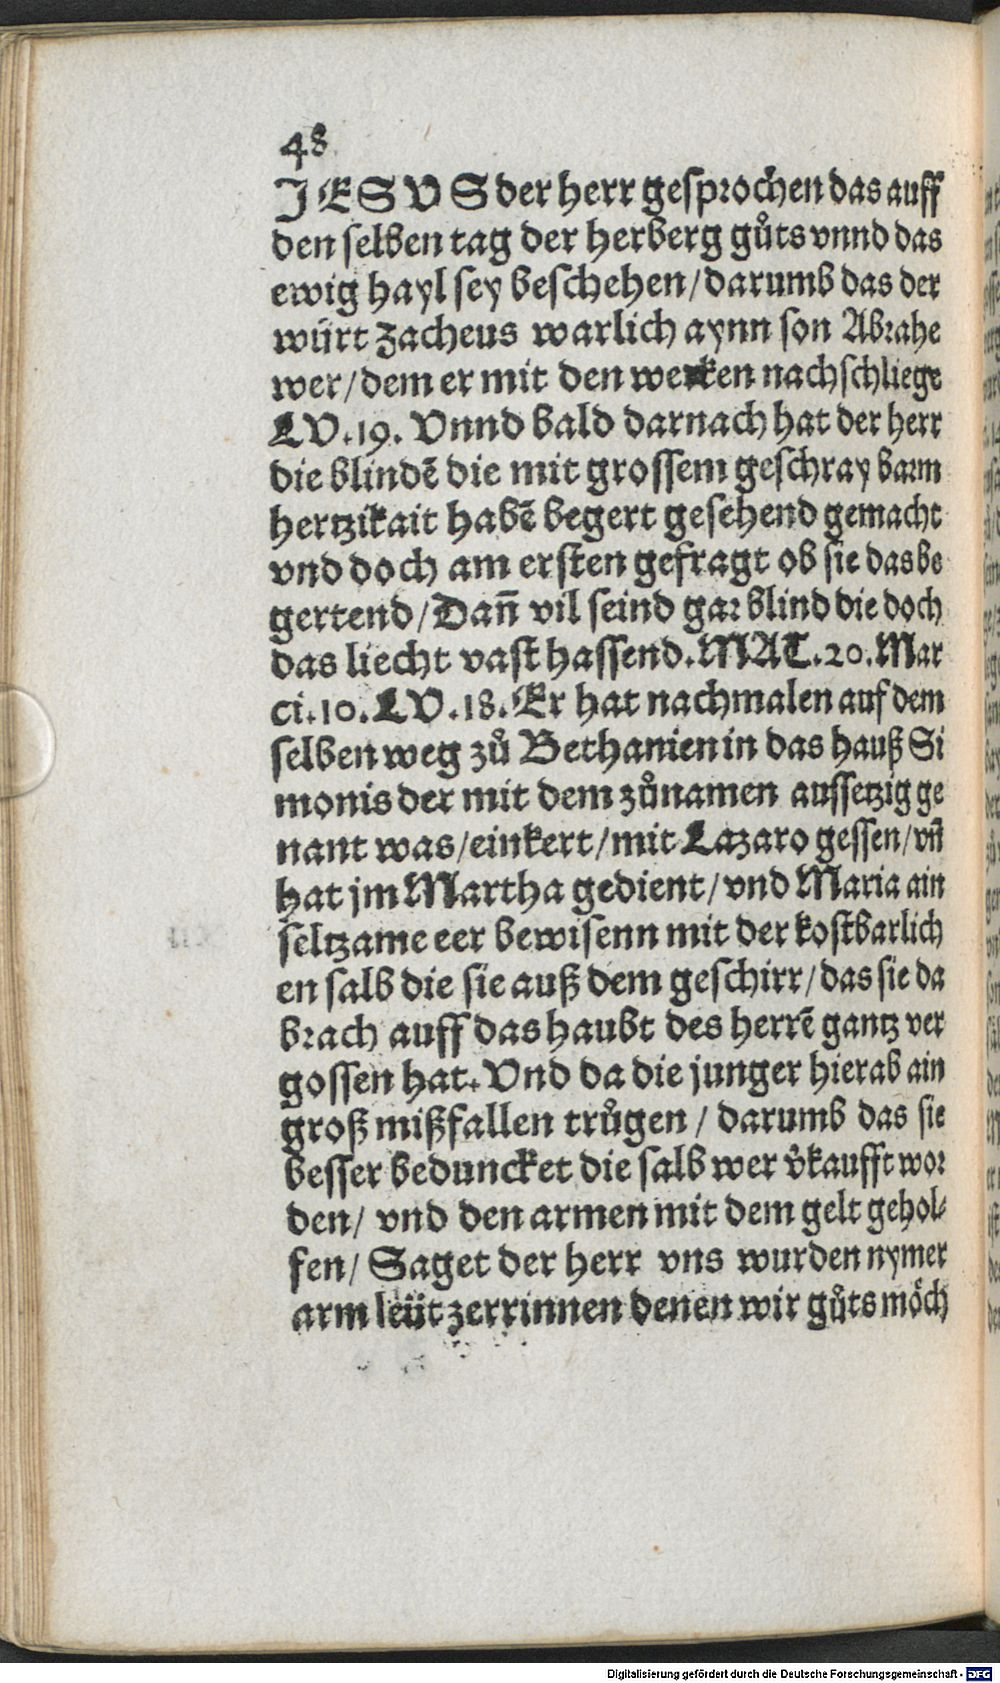 48
JESVS der herr gesprochen das auff
den selben tag der herberg gůts vnnd das
ewig hayl sey beschehen/darumb das der
würt Zacheus warlich aynn son Abrahe
wer/dem er mit den werken nachschliege
LV.19. Vnnd bald darnach hat der herr
die blindẽ die mit grossem geschray barm
hertzikait habẽ begert gesehend gemacht
vnd doch am ersten gefragt ob sie das be
gertend/Dañ vil seind gar blind die doch
das liecht vast hassend.MAT.20.Mar
ci.10.LV.18.Er hat nachmalen auf dem
selben weg zů Bethanien in das hauß Si
monis der mit dem zůnamen aussetzig ge
nant was/einkert/mit Lazaro gessen/vñ
hat jm Martha gedient/vnd Maria ain
seltzame eer bewisenn mit der kostbarlich
en salb die sie auß dem geschirr/das sie da
brach auff das haubt des herrẽ gantz ver
gossen hat. Vnd da die junger hierab ain
groß mißfallen trůgen / darumb das sie
besser beduncket die salb wer v̉kaufft wor
den/ vnd den armen mit dem gelt gehol-
fen/ Saget der herr vns wurden nymer
arm leüt zerrinnen denen wir gůts möch
Digitalisierung gefördert durch die Deutsche Forschungsgemeinschaft - DFG